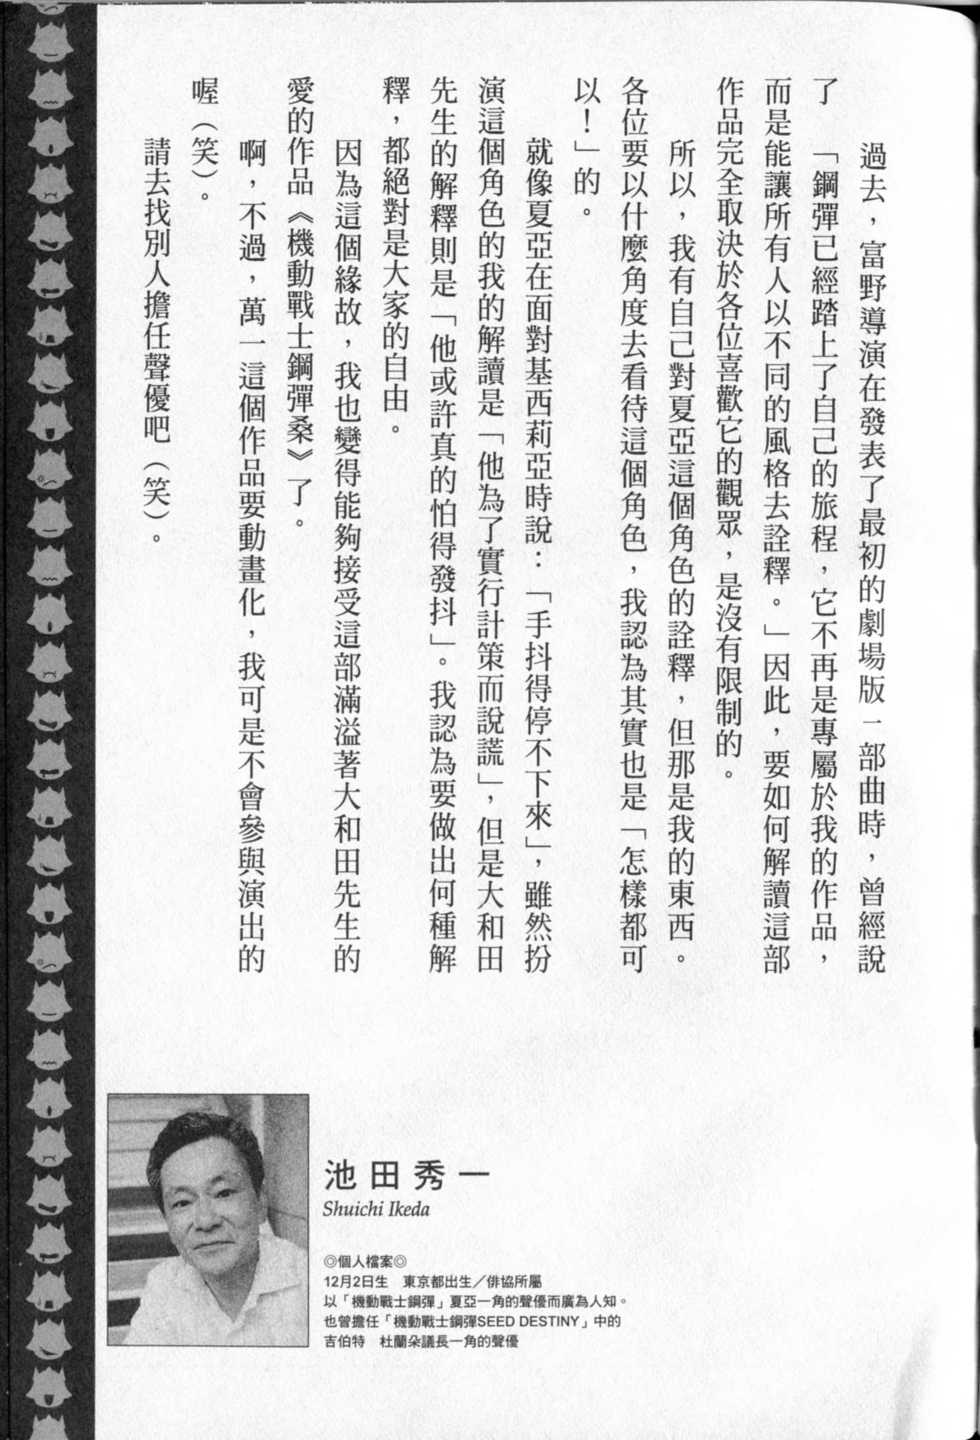 過去，富野導演在發表了最初的劇場版一部曲時，曾經說
了　「鋼彈已經踏上了自己的旅程，它不再是專屬於我的作品，
而是能讓所有人以不同的風格去詮釋。」因此，要如何解讀這部
作品完全取決於各位喜歡它的觀眾，是沒有限制的。
所以，我有自己對夏亞這個角色的詮釋，但那是我的東西。
各位要以什麼角度去看待這個角色，我認為其實也是「怎樣都可
以！」的。
就像夏亞在面對基西莉亞時說：「手抖得停不下來」，雖然扮
演這個角色的我的解讀是「他為了實行計策而說謊」，但是大和田
先生的解釋則是「他或許真的怕得發抖」。我認為要做出何種解
釋，都絕對是大家的自由。
因為這個緣故，我也變得能夠接受這部滿溢著大和田先生的
愛的作品《機動戰士鋼彈桑》了。
啊，不過，萬一這個作品要動畫化，我可是不會參與演出的
喔（笑）。
請去找別人擔任聲優吧（笑）。
池田秀一
Shuichi Ikeda
◎個人檔案◎
12月2日生　東京都出生／俳協所屬
以「機動戰士鋼彈」夏亞一角的聲優而廣為人知。
也曾擔任「機動戰士鋼彈SEED DESTINY」中的
吉伯特　杜蘭朵議長一角的聲優